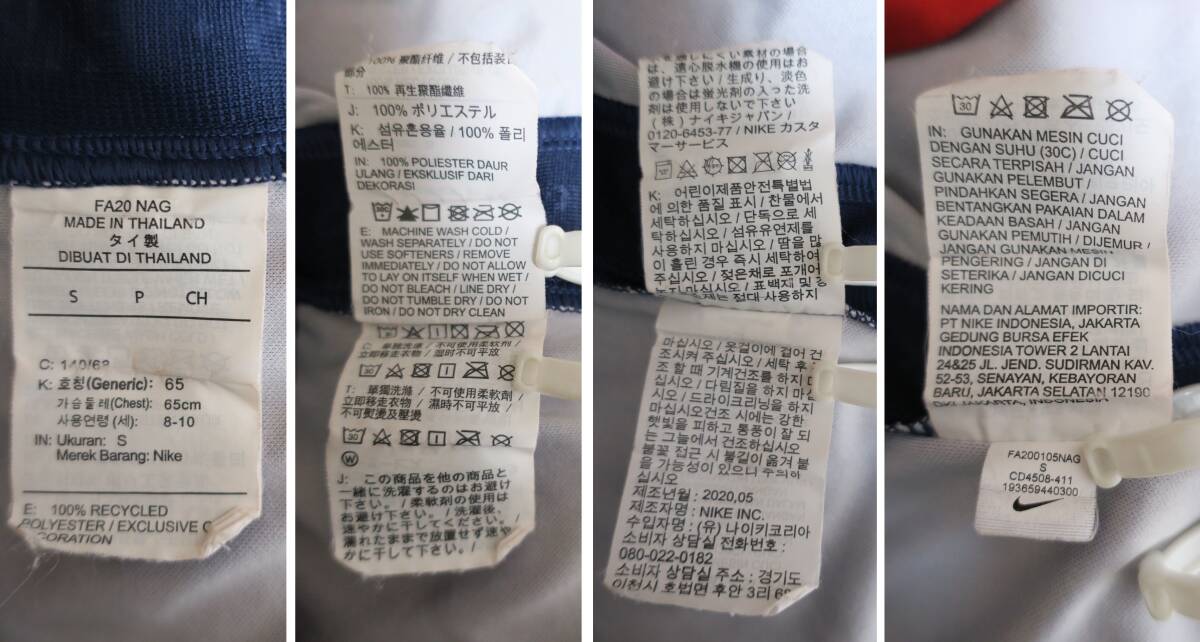 FA20 NAG
MADE IN THAILAND
タイ製
DIBUAT DI THAILAND
S P CH
C: 140/68
K: 호칭(Generic): 65
가슴둘레(Chest): 65cm
사용연령 (세): 8-10
IN: Ukuran: S
Merek Barang: Nike
E: 100% RECYCLED
POLYESTER / EXCLUSIVE O
CORATION
100% 聚酯纤维 / 不包括装
部分
T: 100% 再生聚酯纖維
J: 100% ポリエステル
K: 섬유혼용율 / 100% 폴리
에스터
IN: 100% POLIESTER DAUR
ULANG / EKSKLUSIF DARI
DEKORASI
E: MACHINE WASH COLD /
WASH SEPARATELY / DO NOT
USE SOFTENERS / REMOVE
IMMEDIATELY / DO NOT ALLOW
TO LAY ON ITSELF WHEN WET /
DO NOT BLEACH / LINE DRY /
DO NOT TUMBLE DRY / DO NOT
IRON / DO NOT DRY CLEAN
C: 单独洗涤 / 不可使用柔软剂 /
立即移走衣物 / 湿时不可平放
T: 單獨洗滌 / 不可使用柔軟劑 /
立即移走衣物 / 濕時不可平放 /
不可熨燙及壓燙
30
W
J: この商品を他の商品と
一緒に洗濯するのはお避け
下さい。 / 柔軟剤の使用は
お避け下さい。 / 洗濯後、
速やかに干してください。 /
濡れたままで放置せず速や
かに干して下さい。 /
い素材の場合
は、遠心脱水機の使用はお
避け下さい / 生成り、淡色
の場合は蛍光剤の入った洗
剤は使用しないで下さい
(株) ナイキジャパン /
0120-6453-77 / NIKE カスタ
マーサービス
K: 어린이제품안전특별법
에 의한 품질 표시 / 찬물에서
세탁하십시오 / 단독으로 세
탁하십시오 / 섬유유연제를
사용하지 마십시오 / 땀을 많
이 흘린 경우 즉시 세탁하여
주십시오 / 젖은채로 포개어
지 마십시오 / 표백제 및 강
제는 절대 사용하지
마십시오 / 옷걸이에 걸어 건
조시켜 주십시오 / 세탁 후
조 할 때 기계건조를 하지 마
십시오 / 다림질을 하지 마
십시오 / 드라이크리닝을 하지
마십시오건조 시에는 강한
햇빛을 피하고 통풍이 잘 되
는 그늘에서 건조하십시오
불꽃 접근 시 불길이 옮겨 붙
을 가능성이 있으니 주의하
십시오
제조년월 : 2020,05
제조자명 : NIKE INC.
수입자명 : (유) 나이키코리아
소비자 상담실 전화번호 :
080-022-0182
소비자 상담실 주소 : 경기도
이천시 호법면 후안 3리
30
IN: GUNAKAN MESIN CUCI
DENGAN SUHU (30C) / CUCI
SECARA TERPISAH / JANGAN
GUNAKAN PELEMBUT /
PINDAHKAN SEGERA / JANGAN
BENTANGKAN PAKAIAN DALAM
KEADAAN BASAH / JANGAN
GUNAKAN PEMUTIH / DIJEMUR /
JANGAN GUNAKAN MESIN
PENGERING / JANGAN DI
SETERIKA / JANGAN DICUCI
KERING
NAMA DAN ALAMAT IMPORTIR:
PT NIKE INDONESIA, JAKARTA
GEDUNG BURSA EFEK
INDONESIA TOWER 2 LANTAI
24&25 JL. JEND. SUDIRMAN KAV.
52-53, SENAYAN, KEBAYORAN
BARU, JAKARTA SELATAN 12190
JAKARTA, INDONESIA
FA200105NAG
S
CD4508-411
193659440300